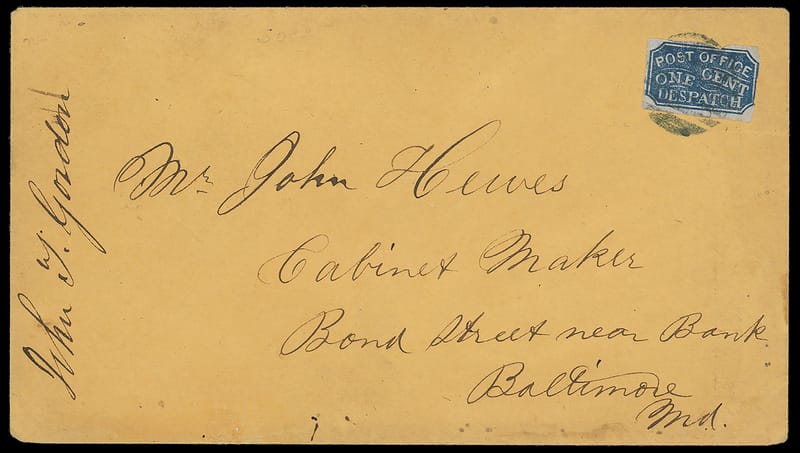 POST OFFICE
ONE CENT
DESPATCH
Mr John Hewes
Cabinet Maker
Bond Street near Bank
Baltimore
Md.
John T. Gordon